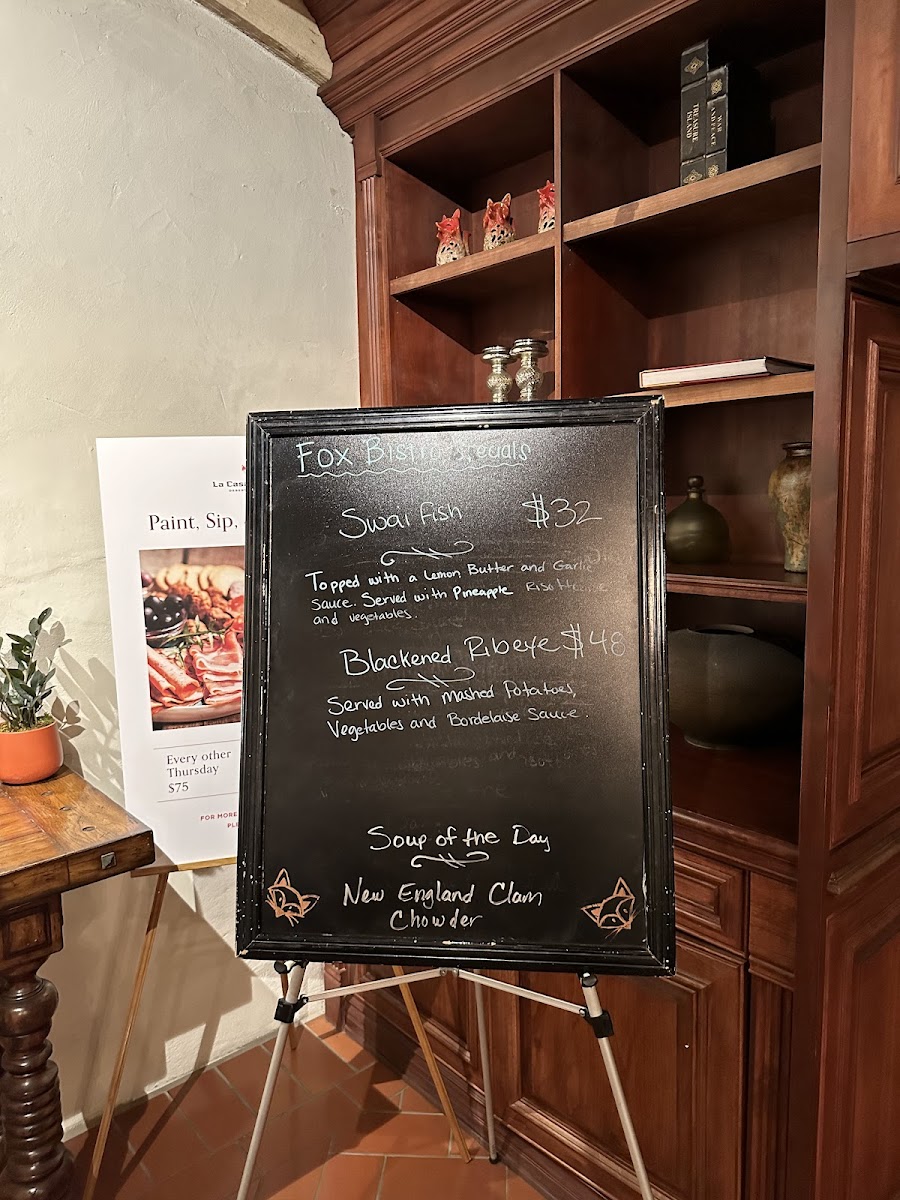 TREASURE
ISLAND
WAR
AND PEACE
Fox Bistro
Swai Fish $32
Topped with a Lemon Butter and Garlic
Sauce. Served with Pineapple Risotto
and vegetables.
Blackened Ribeye $48
Served with Mashed Potatoes,
Vegetables and Bordelaise Sauce.
Soup of the Day
New England Clam
Chowder
La Casa
Paint, Sip,
Every other
Thursday
$75
FOR MORE